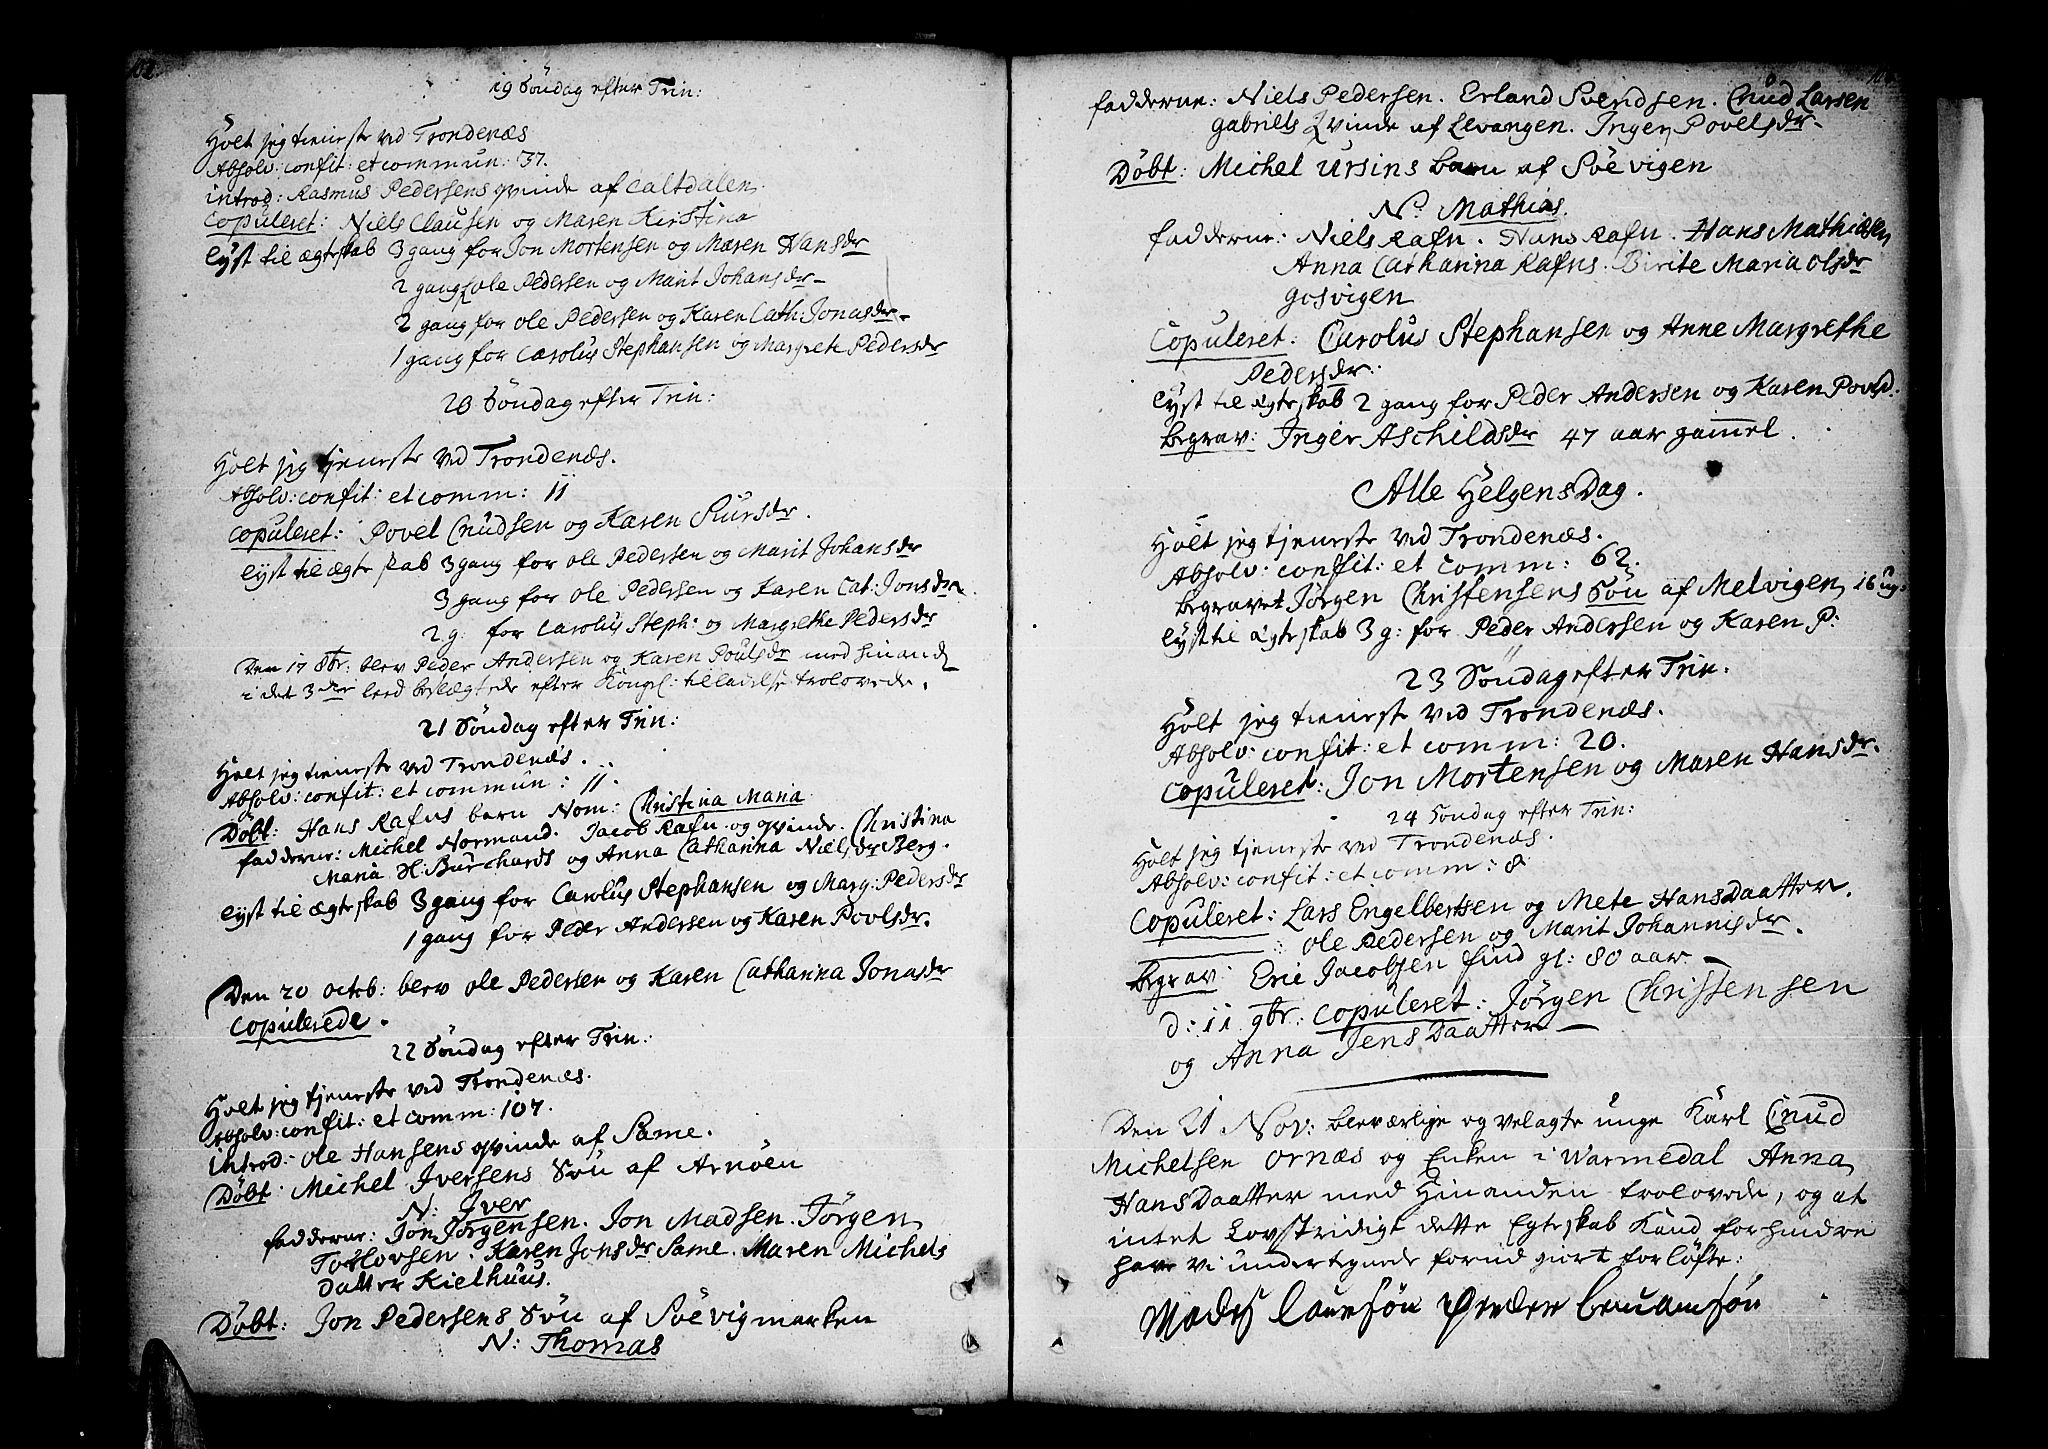 19 Söndag efter Trin:
Holt jeg tieneste ved Trondenæs
Absolv: confit: et commun: 37.
introd: Rasmus Pedersens qvinde af Caltdalen
Copuleret: Niels Clausen og Maren Kirstina
lyst til ægteskab 3 gang for Jon Mortensen og Maren Hansdr
2 gang Ole Pedersen og Marit Johansdr
2 gang for Ole Pedersen og Karen Cath: Jonasdr
1 gang for Carolus Stephansen og Margrete Pedersdr
20 Söndag efter Trin:
Holt jeg tjeneste ved Trondenæs.
Absolv: confit: et comm: 11
Copuleret: Povel Cnudsen og Karen Siursdr.
lyst til ægteskab 3 gang for Ole Pedersen og Marit Johansdr
3 gang for Ole Pedersen og Karen Cat: Jonsdr
2 g: for Carolus Steph: og Margrethe Pedersdr
Den 17 8br: blev Peder Andersen og Karen Poulsdr med hinand
i det 3die leed beslægtede efter Kongel: tilladelse trolovede.
21 Söndag efter Trin:
Holt jeg tieneste ved Trondenæs.
Absolv: confit: et commun: 11.
Döbt: Hans Rafns barn Nom: Christina Maria
fadderne: Michel Normand. Jacob Rafn og qvinde. Christina
Maria H: Burchards og Anna Catharina Nielsdr Berg.
lyst til ægteskab 3 gang for Carolus Stephansen og Marg: Pedersdr
1 gang for Peder Andersen og Karen Povlsdr.
Den 20 octb: blev Ole Pedersen og Karen Catharina Jonasdr
Copulerede.
22 Söndag efter Trin:
Holt jeg tjeneste ved Trondenæs.
Absolv: confit: et comm: 107.
introd: Ole Hansens qvinde af Same.
Döbt: Michel Iversens Sön af Arnöen
N: Iver
fadderne: Jon Jörgensen. Jon Madsen. Jörgen
Tollovsen. Karen Jonsdr Same. Maren Michels
Datter Kielhuus.
Döbt: Jon Pedersens Sön af Söevigmarken
N: Thomas
fadderne: Niels Pedersen. Erland Svendsen. Cnud Larsen
gabriels Qvinde af Levangen. Inger Povelsdr
Döbt: Michel Ursins barn af Söevigen
N: Mathias.
fadderne: Niels Rafn. Hans Rafn. Hans Mathiesen
Anna Catharina Rafns. Birite Maria Olsdr
gosvigen
Copuleret: Carolus Stephansen og Anne Margrethe
Pedersdr.
lyst til Egteskab 2 gang for Peder Andersen og Karen Povlsd.
Begrav: Inger Aschildsdr 47 aar gamel.
Alle Helgens Dag.
Holt jeg tjeneste ved Trondenæs.
Absolv: confit: et comm: 62.
Begravet Jörgen Christensens Sön af Melvigen 16 ug.
lyst til Egteskab 3 g: for Peder Andersen og Karen P:
23 Söndag efter Trin.
Holt jeg tieneste ved Trondenæs.
Absolv: confit: et comm: 20.
Copuleret: Jon Mortensen og Maren Hansdr.
24 Söndag efter Trin:
Holt jeg tjeneste ved Trondenæs.
Absolv: confit: et comm: 8
Copuleret: Lars Engelbertsen og Mete HansDaatter.
Ole Pedersen og Marit Johannisdr.
Begrav: Eric Jacobsen find gl: 80 aar
d: 11 9br: Copuleret: Jörgen Christensen
og Anna JensDaatter
Den 21 Nov: blev ærlige og velagte unge Karl Cnud
Michelsen Ornæs og Enken i Warmedal Anna
HansDaatter med Hinanden trolovede, og at
intet Lovstridigt dette Egteskab Kand forhindre
have vi undertegnede forud giort forlöfte: